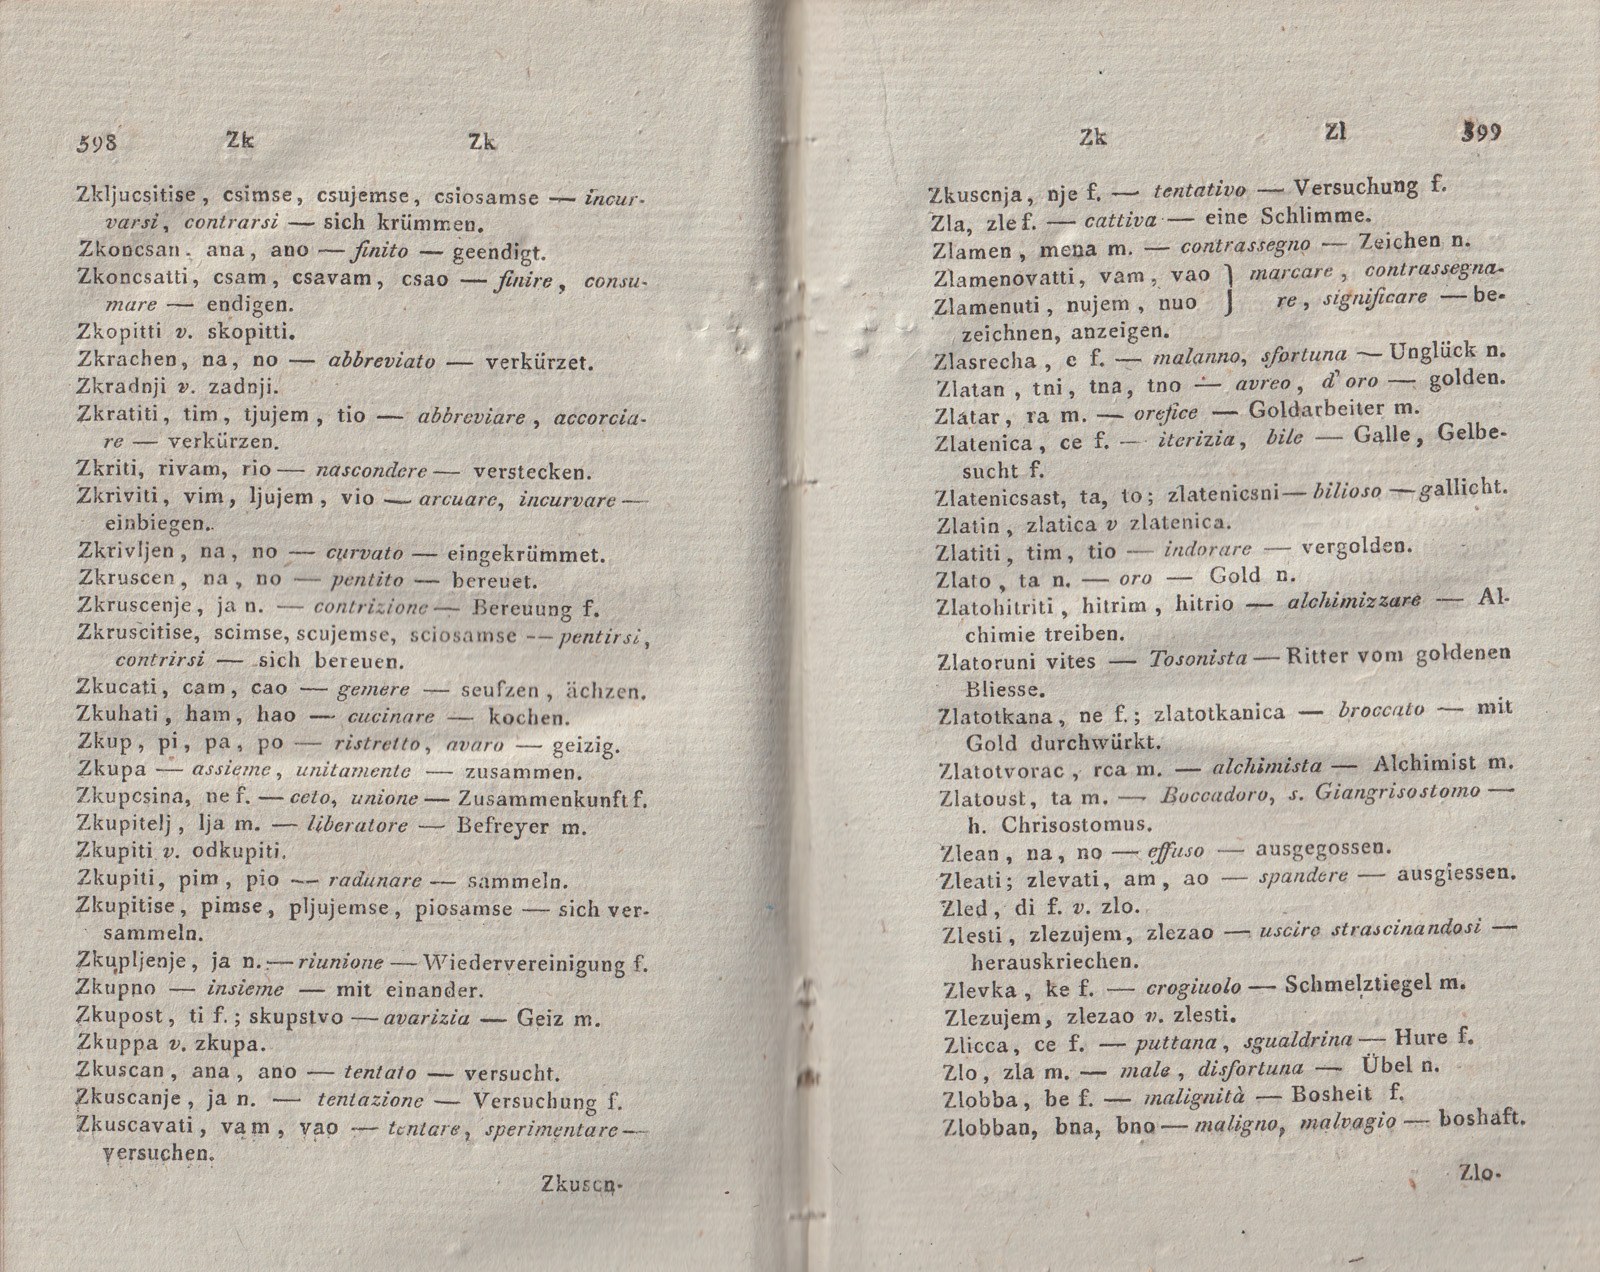 598 Zk Zk
Zkljucsitise, csimse, csujemse, csiosamse — incur-
varsi, contrarsi — sich krümmen.
Zkoncsan. ana, ano — finito — geendigt.
Zkoncsatti, csam, csavam, csao — finire, consu-
mare — endigen.
Zkopitti v. skopitti.
Zkrachen, na, no — abbreviato — verkürzet.
Zkradnji v. zadnji.
Zkratiti, tim, tjujem, tio — abbreviare, accorcia-
re — verkürzen.
Zkriti, rivam, rio — nascondere — verstecken.
Zkriviti, vim, ljujem, vio — arcuare, incurvare —
einbiegen.
Zkrivljen, na, no — curvato — eingekrümmet.
Zkruscen, na, no — pentito — bereuet.
Zkruscenje, ja n. — contrizione — Bereuung f.
Zkruscitise, scimse, scujemse, sciosamse — pentirsi,
contrirsi — sich bereuen.
Zkucati, cam, cao — gemere — seufzen, ächzen.
Zkuhati, ham, hao — cucinare — kochen.
Zkup, pi, pa, po — ristretto, avaro — geizig.
Zkupa — assieme, unitamente — zusammen.
Zkupcsina, ne f. — ceto, unione — Zusammenkunft f.
Zkupitelj, lja m. — liberatore — Befreyer m.
Zkupiti v. odkupiti.
Zkupiti, pim, pio — radunare — sammeln.
Zkupitise, pimse, pljujemse, piosamse — sich ver-
sammeln.
Zkupljenje, ja n. — riunione — Wiedervereinigung f.
Zkupno — insieme — mit einander.
Zkupost, ti f.; skupstvo — avarizia — Geiz m.
Zkuppa v. zkupa.
Zkuscan, ana, ano — tentato — versucht.
Zkuscanje, ja n. — tentazione — Versuchung f.
Zkuscavati, vam, vao — tentare, sperimentare —
versuchen.
Zkuscn-
Zk Zl 399
Zkuscnja, nje f. — tentativo — Versuchung f.
Zla, zle f. — cattiva — eine Schlimme.
Zlamen, mena m. — contrassegno — Zeichen n.
Zlamenovatti, vam, vao } marcare, contrassegna-
Zlamenuti, nujem, nuo } re, significare — be-
zeichnen, anzeigen.
Zlasrecha, e f. — malanno, sfortuna — Unglück n.
Zlatan, tni, tna, tno — avreo, d'oro — golden.
Zlatar, ra m. — orefice — Goldarbeiter m.
Zlatenica, ce f. — iterizia, bile — Galle, Gelbe-
sucht f.
Zlatenicsast, ta, to; zlatenicsni — bilioso — gallicht.
Zlatin, zlatica v zlatenica.
Zlatiti, tim, tio — indorare — vergolden.
Zlato, ta n. — oro — Gold n.
Zlatohitriti, hitrim, hitrio — alchimizzare — Al-
chimie treiben.
Zlatoruni vites — Tosonista — Ritter vom goldenen
Bliesse.
Zlatotkana, ne f.; zlatotkanica — broccato — mit
Gold durchwürkt.
Zlatotvorac, rca m. — alchimista — Alchimist m.
Zlatoust, ta m. — Boccadoro, s. Giangrisostomo —
h. Chrisostomus.
Zlean, na, no — effuso — ausgegossen.
Zleati; zlevati, am, ao — spandere — ausgiessen.
Zled, di f. v. zlo.
Zlesti, zlezujem, zlezao — uscire strascinandosi —
herauskriechen.
Zlevka, ke f. — crogiuolo — Schmelztiegel m.
Zlezujem, zlezao v. zlesti.
Zlicca, ce f. — puttana, sgualdrina — Hure f.
Zlo, zla m. — male, disfortuna — Übel n.
Zlobba, be f. — malignità — Bosheit f.
Zlobban, bna, bno — maligno, malvagio — boshaft.
Zlo-